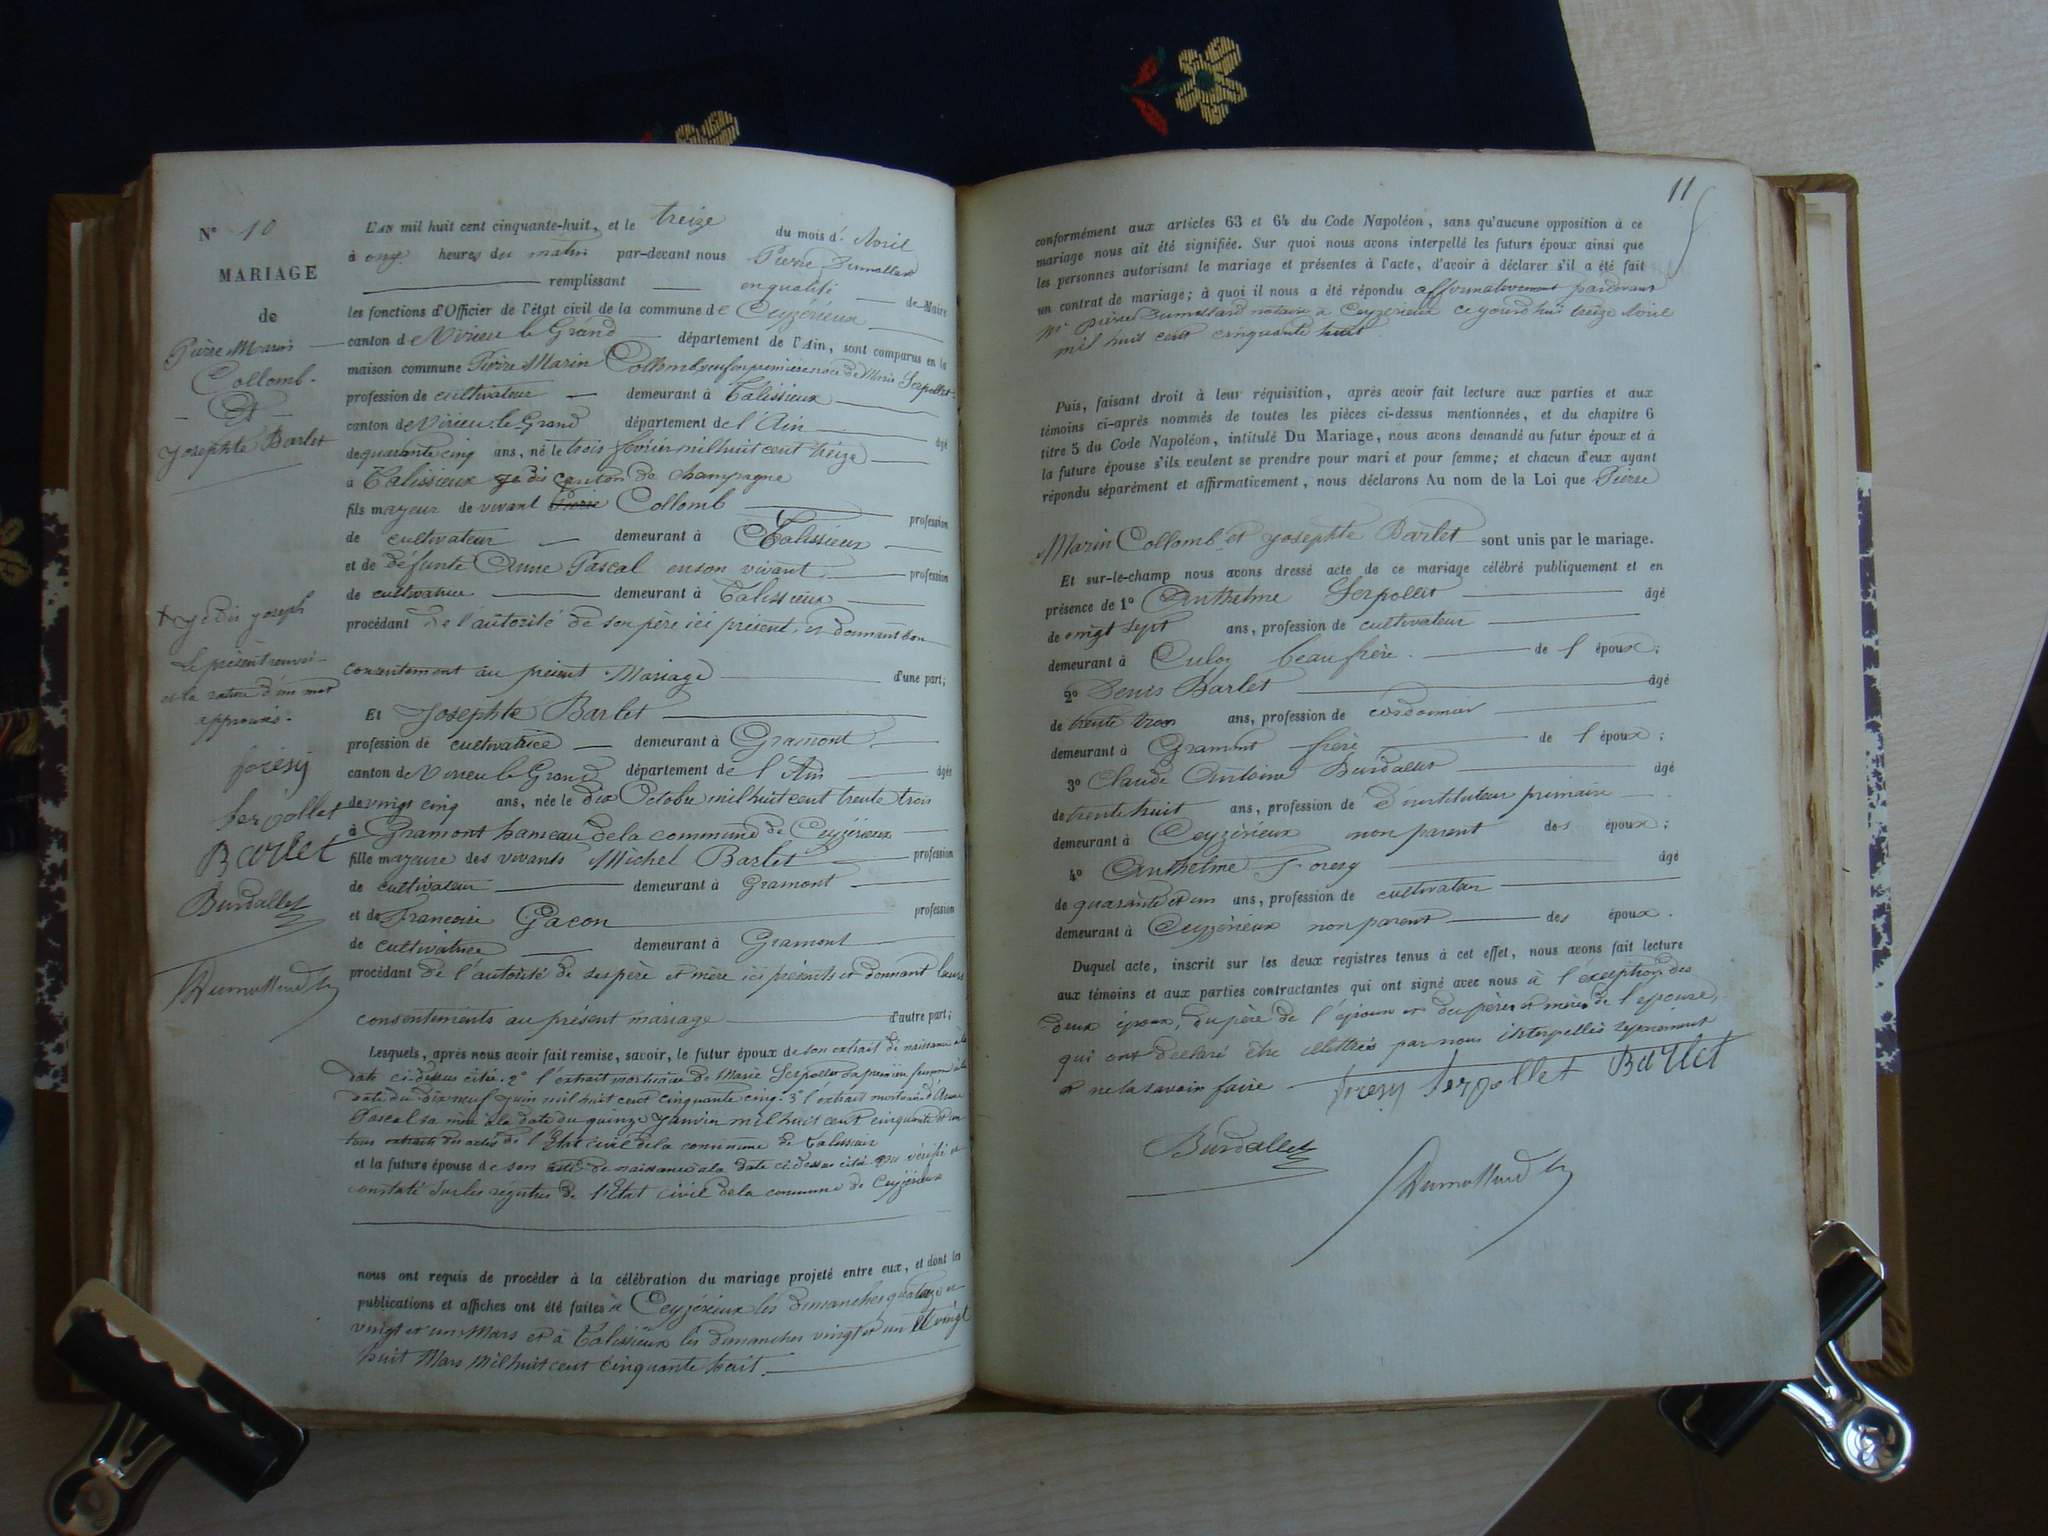 N° 10
MARIAGE
de
Pierre Marin
Collomb.
- Et -
Josephte Barlet
L'AN mil huit cent cinquante-huit, et le treize du mois d' Avril
à onze heures du matin par-devant nous Pierre Dumollard
remplissant en qualité de Maire
les fonctions d'Officier de l'état civil de la commune de Ceyzérieux
canton de Virieu le Grand département de l'Ain, sont comparus en la
maison commune Pierre Marin Collomb veuf en première noce de Marie Serpollet
profession de cultivateur demeurant à Talissieux
canton de Virieu le Grand département de l'Ain âgé
de quarante cinq ans, né le trois février mil huit cent treize
à Talissieux canton de Champagne
fils majeur de vivant Collomb profession
de cultivateur demeurant à Talissieux
et de défunte Anne Pascal en son vivant profession
de cultivatrice demeurant à Talissieux
procédant de l'autorité de son père ici présent et donnant son
consentement au présent Mariage d'une part;
Et Josephte Barlet
profession de cultivatrice demeurant à Gramont
canton de Virieu le Grand département de l'Ain âgée
de vingt cinq ans, née le dix Octobre mil huit cent trente trois
à Gramont hameau de la commune de Ceyzérieux
fille majeure des vivants Michel Barlet profession
de cultivateur demeurant à Gramont
et de Françoise Gacon profession
de cultivatrice demeurant à Gramont
procédant de l'autorité de ses père et mère ici présents et donnant leurs
consentements au présent mariage d'autre part;
Lesquels, après nous avoir fait remise, savoir, le futur époux de son extrait de naissance à la
date ci-dessus citée. 2° l'extrait mortuaire de Marie Serpollet sa première femme à la
date du dix neuf Juin mil huit cent cinquante cinq. 3° l'extrait mortuaire d'Anne
Pascal sa mère à la date du quinze Janvier mil huit cent cinquante et un
tous extraits des actes de l'Etat civil de la commune de Talissieux
et la future épouse de son acte de naissance à la date ci-dessus citée vérifié et
constaté sur les registres de l'Etat civil de la commune de Ceyzérieux
nous ont requis de procéder à la célébration du mariage projeté entre eux, et dont les
publications et affiches ont été faites à Ceyzérieux les dimanches quatorze et
vingt et un Mars et à Talissieux les dimanches vingt et un et vingt
huit Mars mil huit cent cinquante huit.
+ Je dis Joseph
Le présent renvoi
et la rature d'un mot
approuvés.
foresy
Serpollet
Barlet
Burdallet
Dumollard
11
conformément aux articles 63 et 64 du Code Napoléon, sans qu'aucune opposition à ce
mariage nous ait été signifiée. Sur quoi nous avons interpellé les futurs époux ainsi que
les personnes autorisant le mariage et présentes à l'acte, d'avoir à déclarer s'il a été fait
un contrat de mariage; à quoi il nous a été répondu affirmativement pardevant
Me Pierre Dumollard notaire à Ceyzérieux ce jourd'hui treize Avril
mil huit cent cinquante huit
Puis, faisant droit à leur réquisition, après avoir fait lecture aux parties et aux
témoins ci-après nommés de toutes les pièces ci-dessus mentionnées, et du chapitre 6
titre 5 du Code Napoléon, intitulé Du Mariage, nous avons demandé au futur époux et à
la future épouse s'ils veulent se prendre pour mari et pour femme; et chacun d'eux ayant
répondu séparément et affirmativement, nous déclarons Au nom de la Loi que Pierre
Marin Collomb et Josephte Barlet sont unis par le mariage.
Et sur-le-champ nous avons dressé acte de ce mariage célébré publiquement et en
présence de 1° Anthelme Serpollet âgé
de vingt sept ans, profession de cultivateur
demeurant à Culoz beau frère de l'époux;
2° Denis Barlet âgé
de trente trois ans, profession de cordonnier
demeurant à Gramont frère de l'époux;
3° Claude Antoine Burdallet âgé
de trente huit ans, profession de d'instituteur primaire
demeurant à Ceyzérieux non parent des époux;
4° Anthelme Foresy âgé
de quarante et un ans, profession de cultivateur
demeurant à Ceyzérieux non parent des époux.
Duquel acte, inscrit sur les deux registres tenus à cet effet, nous avons fait lecture
aux témoins et aux parties contractantes qui ont signé avec nous à l'exception des
deux époux, du père de l'époux et des père et mère de l'épouse,
qui ont déclaré être illettrés par nous interpellés séparément
et ne la savoir faire foresy Serpollet Barlet
Burdallet
Dumollard